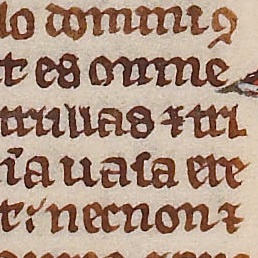 lo domini ꝯ
t es omne
trullas ⁊ tri
īa uasa ere
t: necnon ⁊